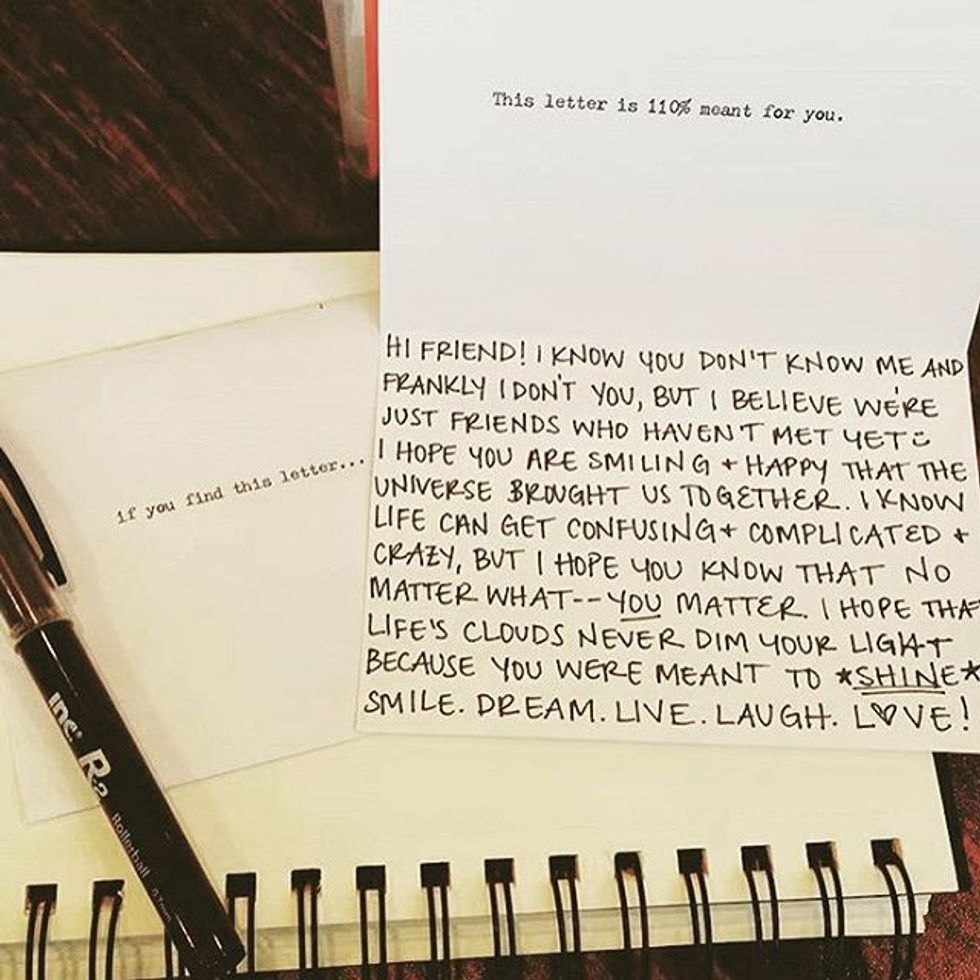 This letter is 110% meant for you.
HI FRIEND! I KNOW YOU DON'T KNOW ME AND
FRANKLY I DON'T YOU, BUT I BELIEVE WE'RE
JUST FRIENDS WHO HAVEN'T MET YET
I HOPE YOU ARE SMILING + HAPPY THAT THE
UNIVERSE BROUGHT US TOGETHER. I KNOW
LIFE CAN GET CONFUSING + COMPLICATED +
CRAZY, BUT I HOPE YOU KNOW THAT NO
MATTER WHAT--YOU MATTER. I HOPE THAT
LIFE'S CLOUDS NEVER DIM YOUR LIGHT
BECAUSE YOU WERE MEANT TO *SHINE*
SMILE. DREAM. LIVE. LAUGH. L♡VE!
if you find this letter...
inc. R-2 Rollerball 0.7mm